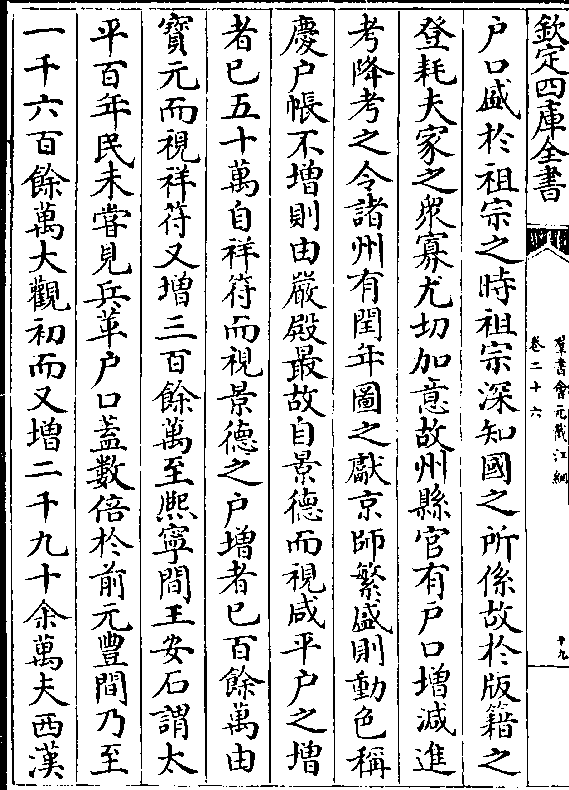 欽定四庫全書
羣書會元截江網
卷二十六
十九
户口盛於祖宗之時祖宗深知國之所係故於版籍之
登耗夫家之衆寡尤切加意故州縣官有户口增減進
考降考之令諸州有閏年圖之獻京師繁盛則動色稱
慶户帳不增則由嚴殿最故自景德而視咸平户之增
者已五十萬自祥符而視景德之户增者已百餘萬由
寶元而視祥符又增三百餘萬至熈寧間王安石謂太
平百年民未嘗見兵革户口蓋數倍於前元豐間乃至
一千六百餘萬大觀初而又增二千九十余萬夫西漢